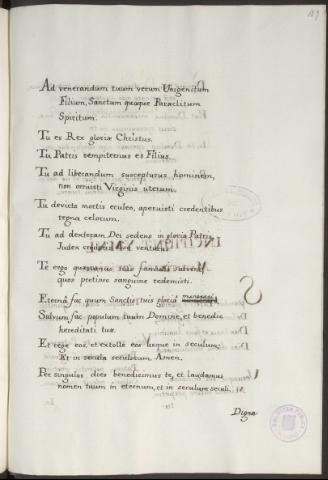 Ad venerandum tuum verum Unigenitum
Filium, Sanctum quoque Paraclitum
Spiritum.
Tu es Rex gloriæ Christus.
Tu Patris sempiternus es Filius.
Tu ad liberandum suscepturus hominem,
non orruisti Virginis uterum.
Tu devicto mortis aculeo, aperuisti credentibus
regna celorum.
Tu ad dexteram Dei sedens in gloria Patris
Judex venturus.
Te ergo quæsumus tuis famulis subveni
quos pretioso sanguine redemisti.
Eterna fac quum Sanctis tuis gloria
Salvum fac populum tuum Domine, et benedic
hereditati tuæ.
Et rege eos, et extolle eos usque in seculum;
Et in secula seculorum Amen.
Per singulos dies benedicimus te, et laudamus
nomen tuum in eternum, et in seculum seculi.
Digna